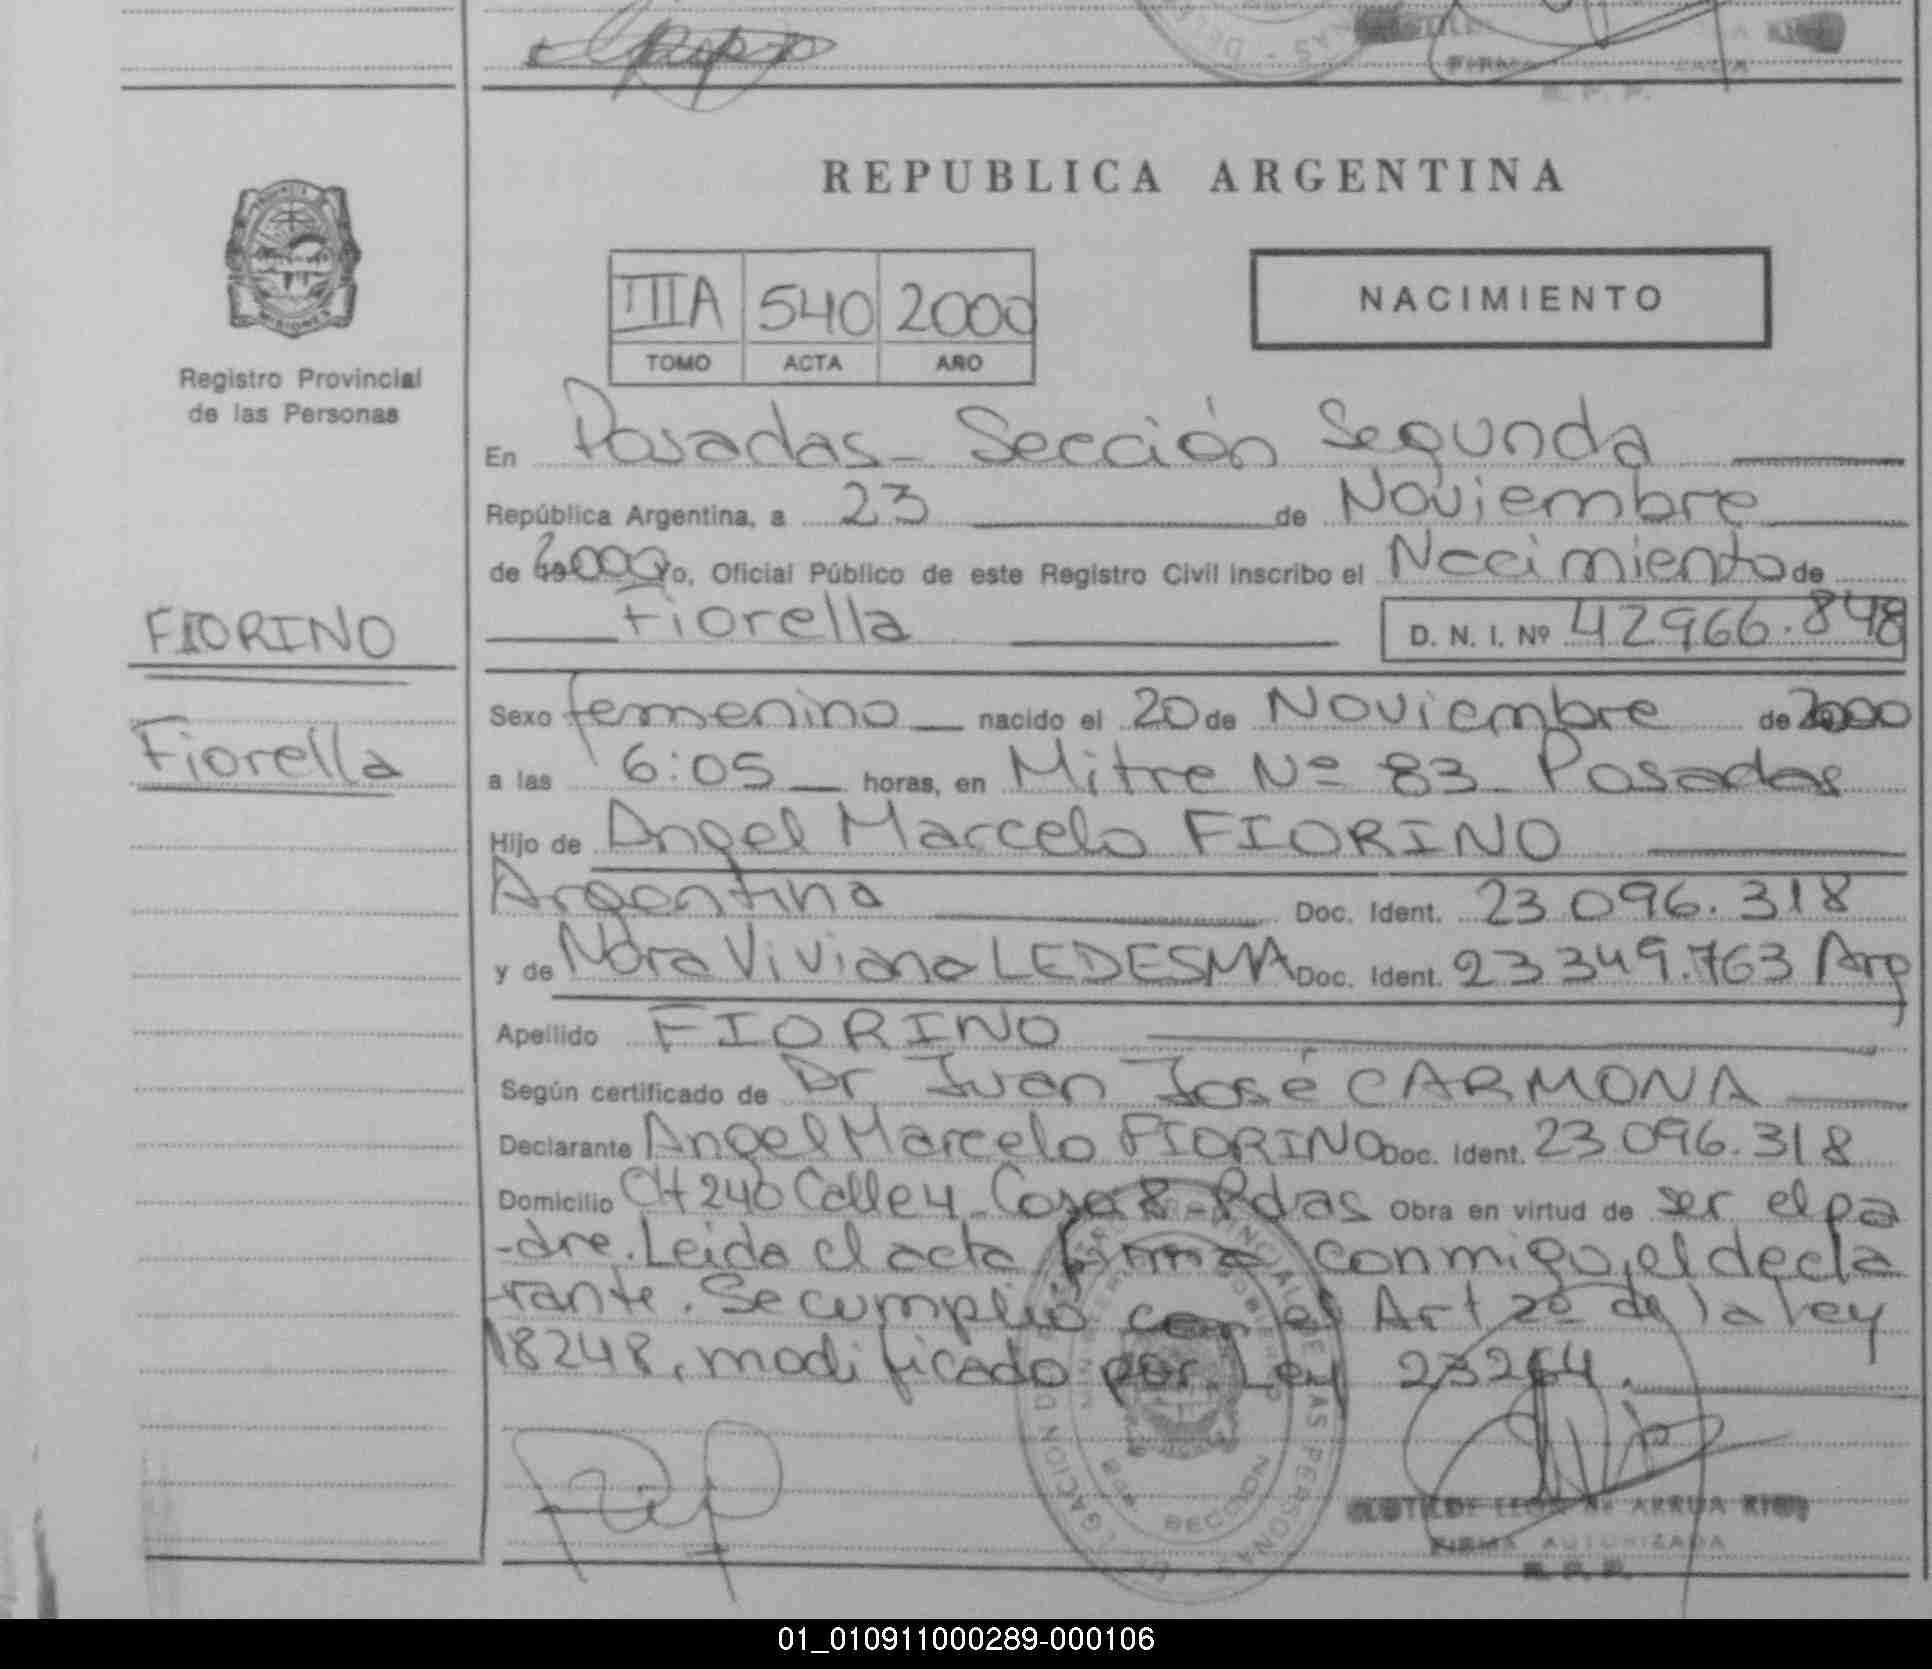 REPUBLICA ARGENTINA
Registro Provincial
de las Personas
IIIA 540 2000
TOMO ACTA AÑO
NACIMIENTO
En Posadas - Sección Segunda
República Argentina, a 23 de Noviembre
de 2000 Yo, Oficial Público de este Registro Civil inscribo el Nacimiento de
Fiorella D. N. I. Nº 42966.848
FIORINO
Fiorella
Sexo femenino nacido el 20 de Noviembre de 2000
a las 6:05 horas, en Mitre Nº 83 - Posadas
Hijo de Angel Marcelo FIORINO
Argentina Doc. Ident. 23 096.318
y de Nora Viviana LEDESMA Doc. Ident. 23 349.763 Arg
Apellido FIORINO
Según certificado de Dr. Juan José CARMONA
Declarante Angel Marcelo FIORINO Doc. Ident. 23 096.318
Domicilio CH 240 Calle 4 - Casa 8 - Pdas Obra en virtud de ser el pa
-dre. Leida el acta firma conmigo, el decla
-rante. Se cumplió con el Art 2º de la ley
18248, modificado por Ley 23264.
CLOTILDE LEON de ARRUA RIOS
FIRMA AUTORIZADA
R. P. P.
01_010911000289-000106